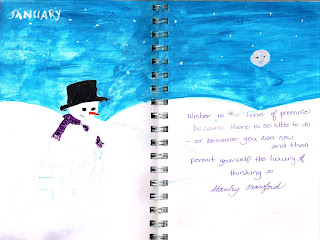 JANUARY
Winter is the time of promise
because there is so little to do
- or because you can now
and then
permit yourself the luxury of
thinking so
Stanley Crawford